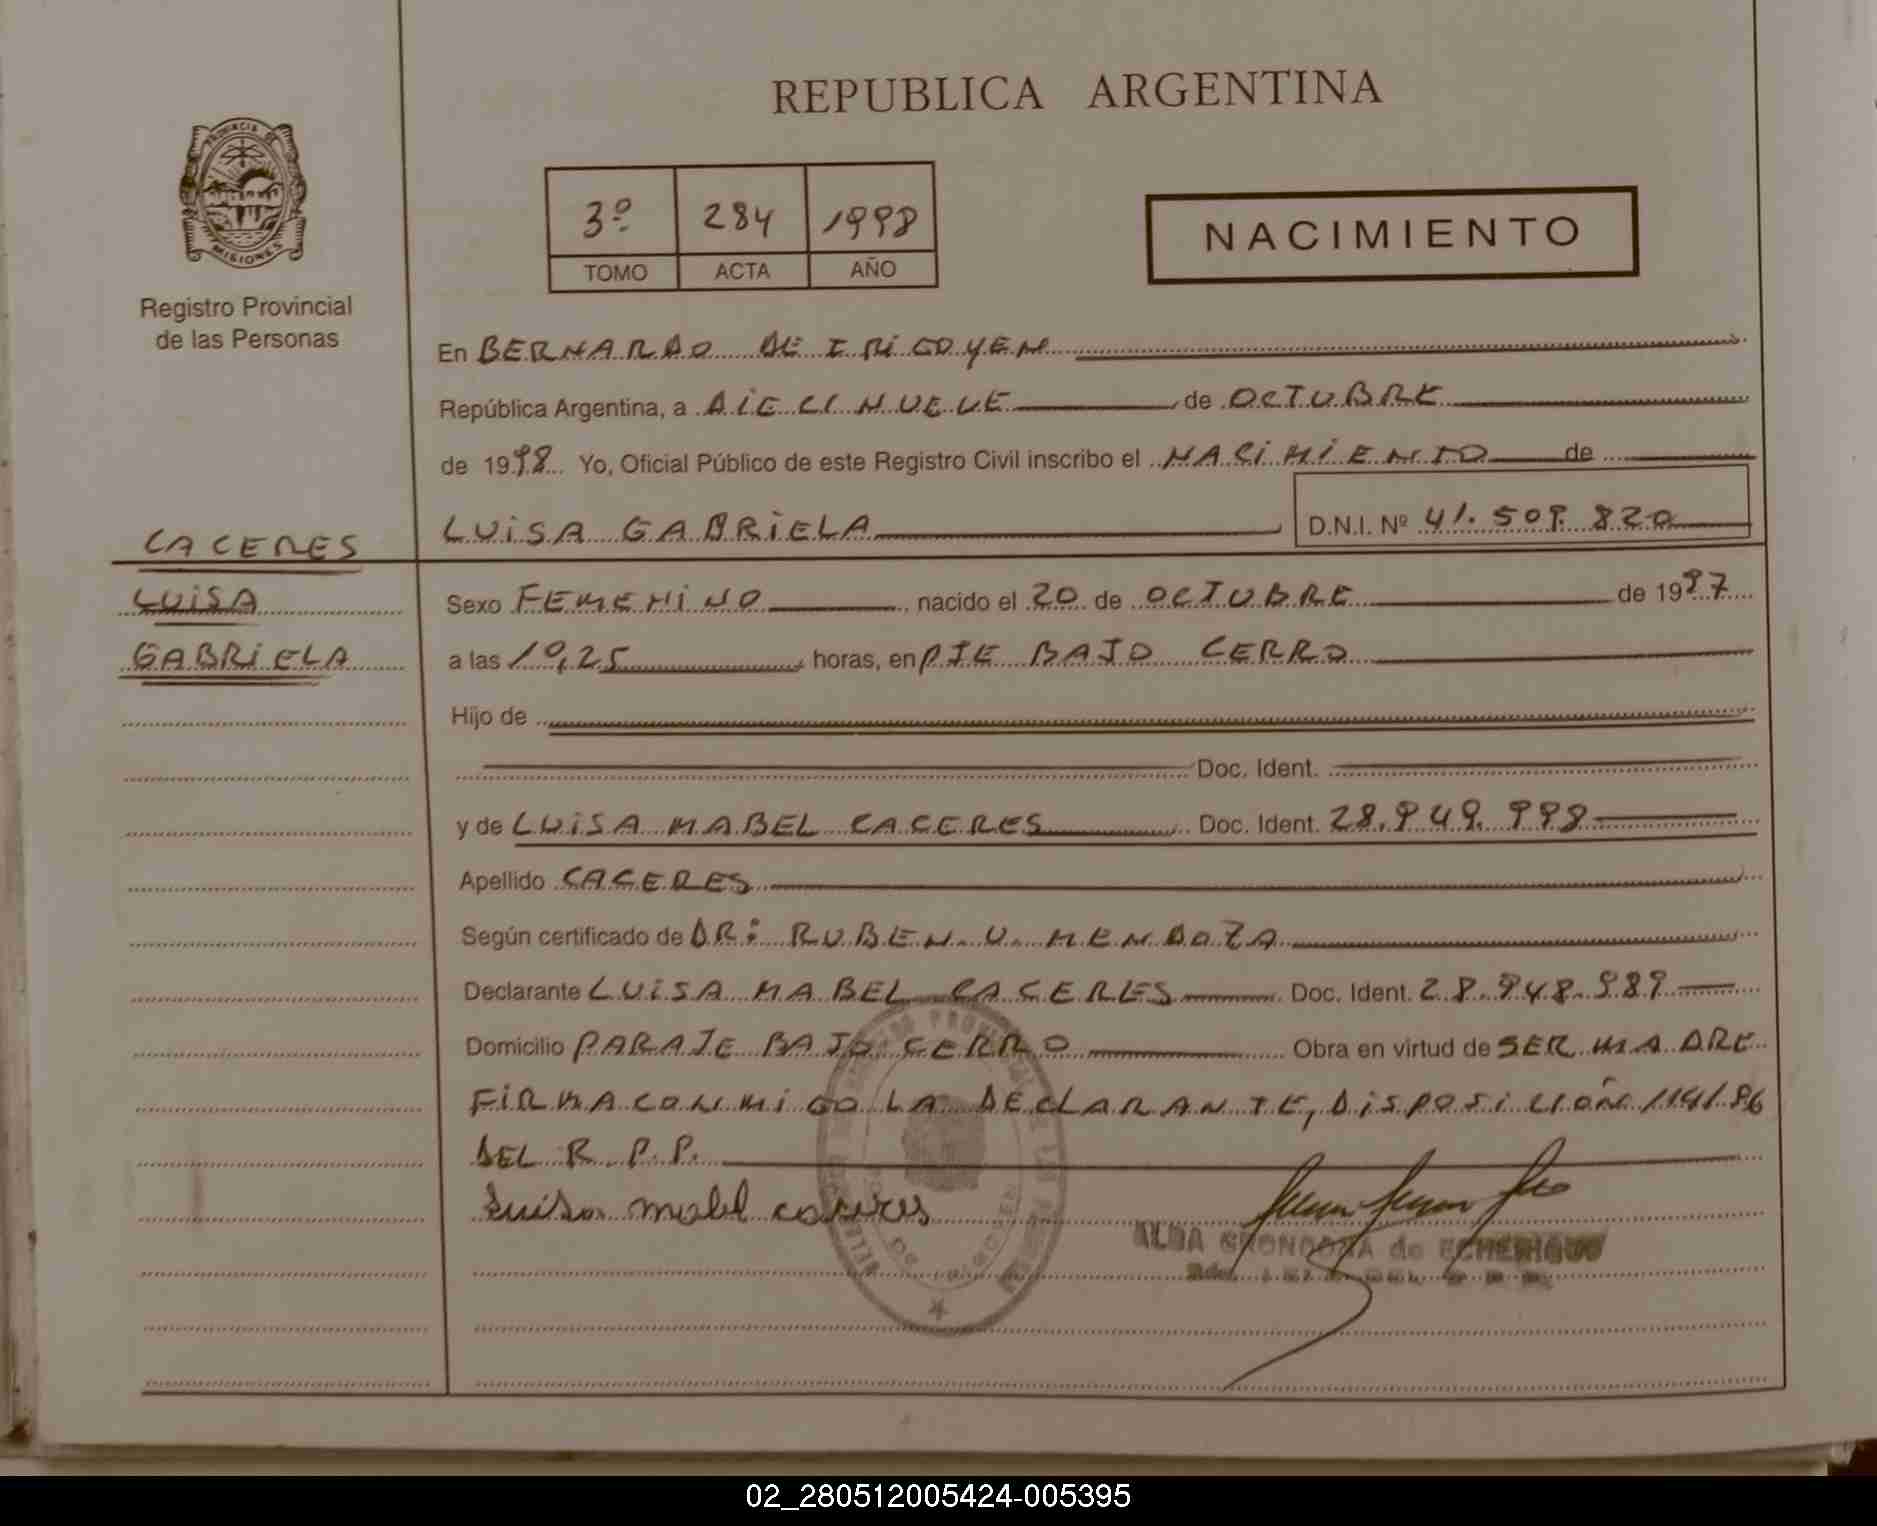 REPUBLICA ARGENTINA
PROVINCIA DE
MISIONES
Registro Provincial
de las Personas
3º 284 1998
TOMO ACTA AÑO
NACIMIENTO
En BERNARDO DE IRIGOYEN
República Argentina, a DIECINUEVE de OCTUBRE
de 1998 Yo, Oficial Público de este Registro Civil inscribo el NACIMIENTO de
LUISA GABRIELA D.N.I. Nº 41.509.820
CACERES
LUISA
GABRIELA
Sexo FEMENINO nacido el 20 de OCTUBRE de 1997
a las 10,25 horas, en PJE BAJO CERRO
Hijo de
Doc. Ident.
y de LUISA MABEL CACERES Doc. Ident. 28.949.998
Apellido CACERES
Según certificado de DR: RUBEN U. MENDOZA
Declarante LUISA MABEL CACERES Doc. Ident. 28.948.989
Domicilio PARAJE BAJO CERRO Obra en virtud de SER MADRE
FIRMA CONMIGO LA DECLARANTE, DISPOSICIÓN
DEL R.P.P.
Luisa mabel caseres
ALBA GRONDONA de
02_280512005424-005395